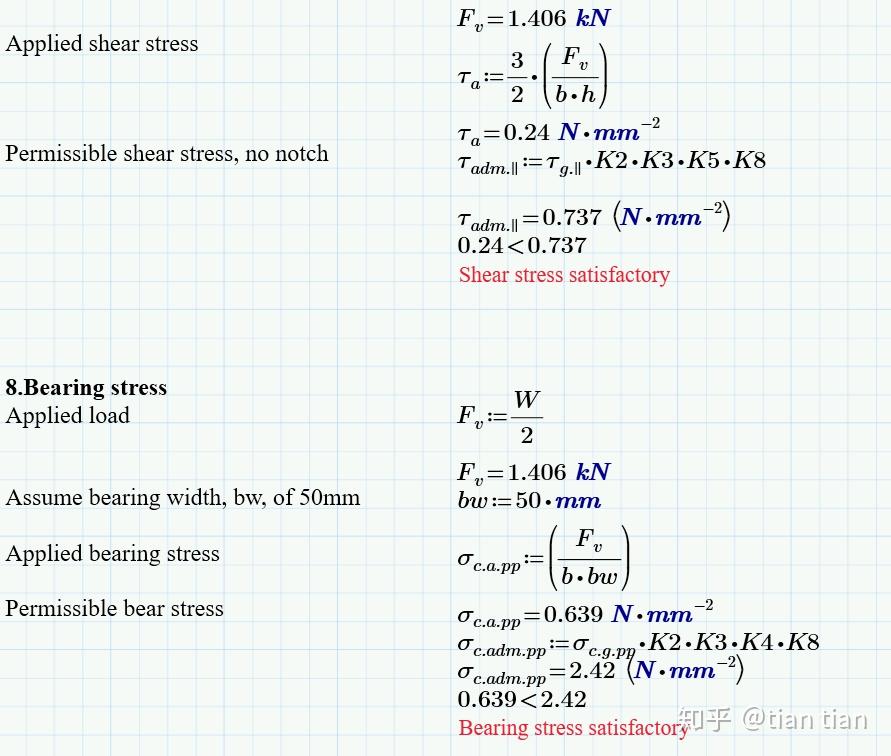 F_v=1.406 kN
Applied shear stress
τ_a:=3/2·(F_v/(b·h))
τ_a=0.24 N·mm^-2
Permissible shear stress, no notch
τ_adm.∥:=τ_g.∥·K2·K3·K5·K8
τ_adm.∥=0.737 (N·mm^-2)
0.24<0.737
Shear stress satisfactory
8.Bearing stress
Applied load
F_v:=W/2
F_v=1.406 kN
Assume bearing width, bw, of 50mm
bw:=50·mm
Applied bearing stress
σ_c.a.pp:=(F_v/(b·bw))
Permissible bear stress
σ_c.a.pp=0.639 N·mm^-2
σ_c.adm.pp:=σ_c.g.pp·K2·K3·K4·K8
σ_c.adm.pp=2.42 (N·mm^-2)
0.639<2.42
Bearing stress satisfactory
知乎 @tian tian